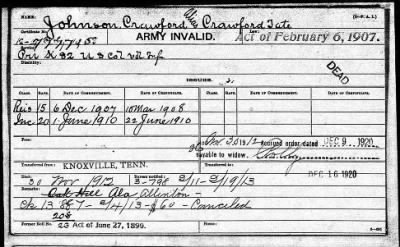 (3-F. A. L)
Johnson, Crawford, Alias Crawford Tate
ARMY INVALID. Act of February 6, 1907.
Pri K 82 U S Col Vol Inf.
DEAD
CLASS. RATE. DATE OF COMMENCEMENT. DATE OF CERTIFICATE. CLASS. RATE. DATE OF COMMENCEMENT. DATE OF CERTIFICATE.
Reis 15 6 Dec 1907 10 Mar 1908
Inc 20 1 June 1910 22 June 1910
Accrued order dated DEC 9 1920
payable to widow.
Transferred from KNOXVILLE, TENN.
DEC 16 1920
Died 30 Nov 1912 3-798 2/11-2/19/13
Remarks: Oak Hill Ala Allenton -
Ck 13 887 - 2/4/13 - $60 - Canceled
208
Former Roll No. 23 Act of June 27, 1890.